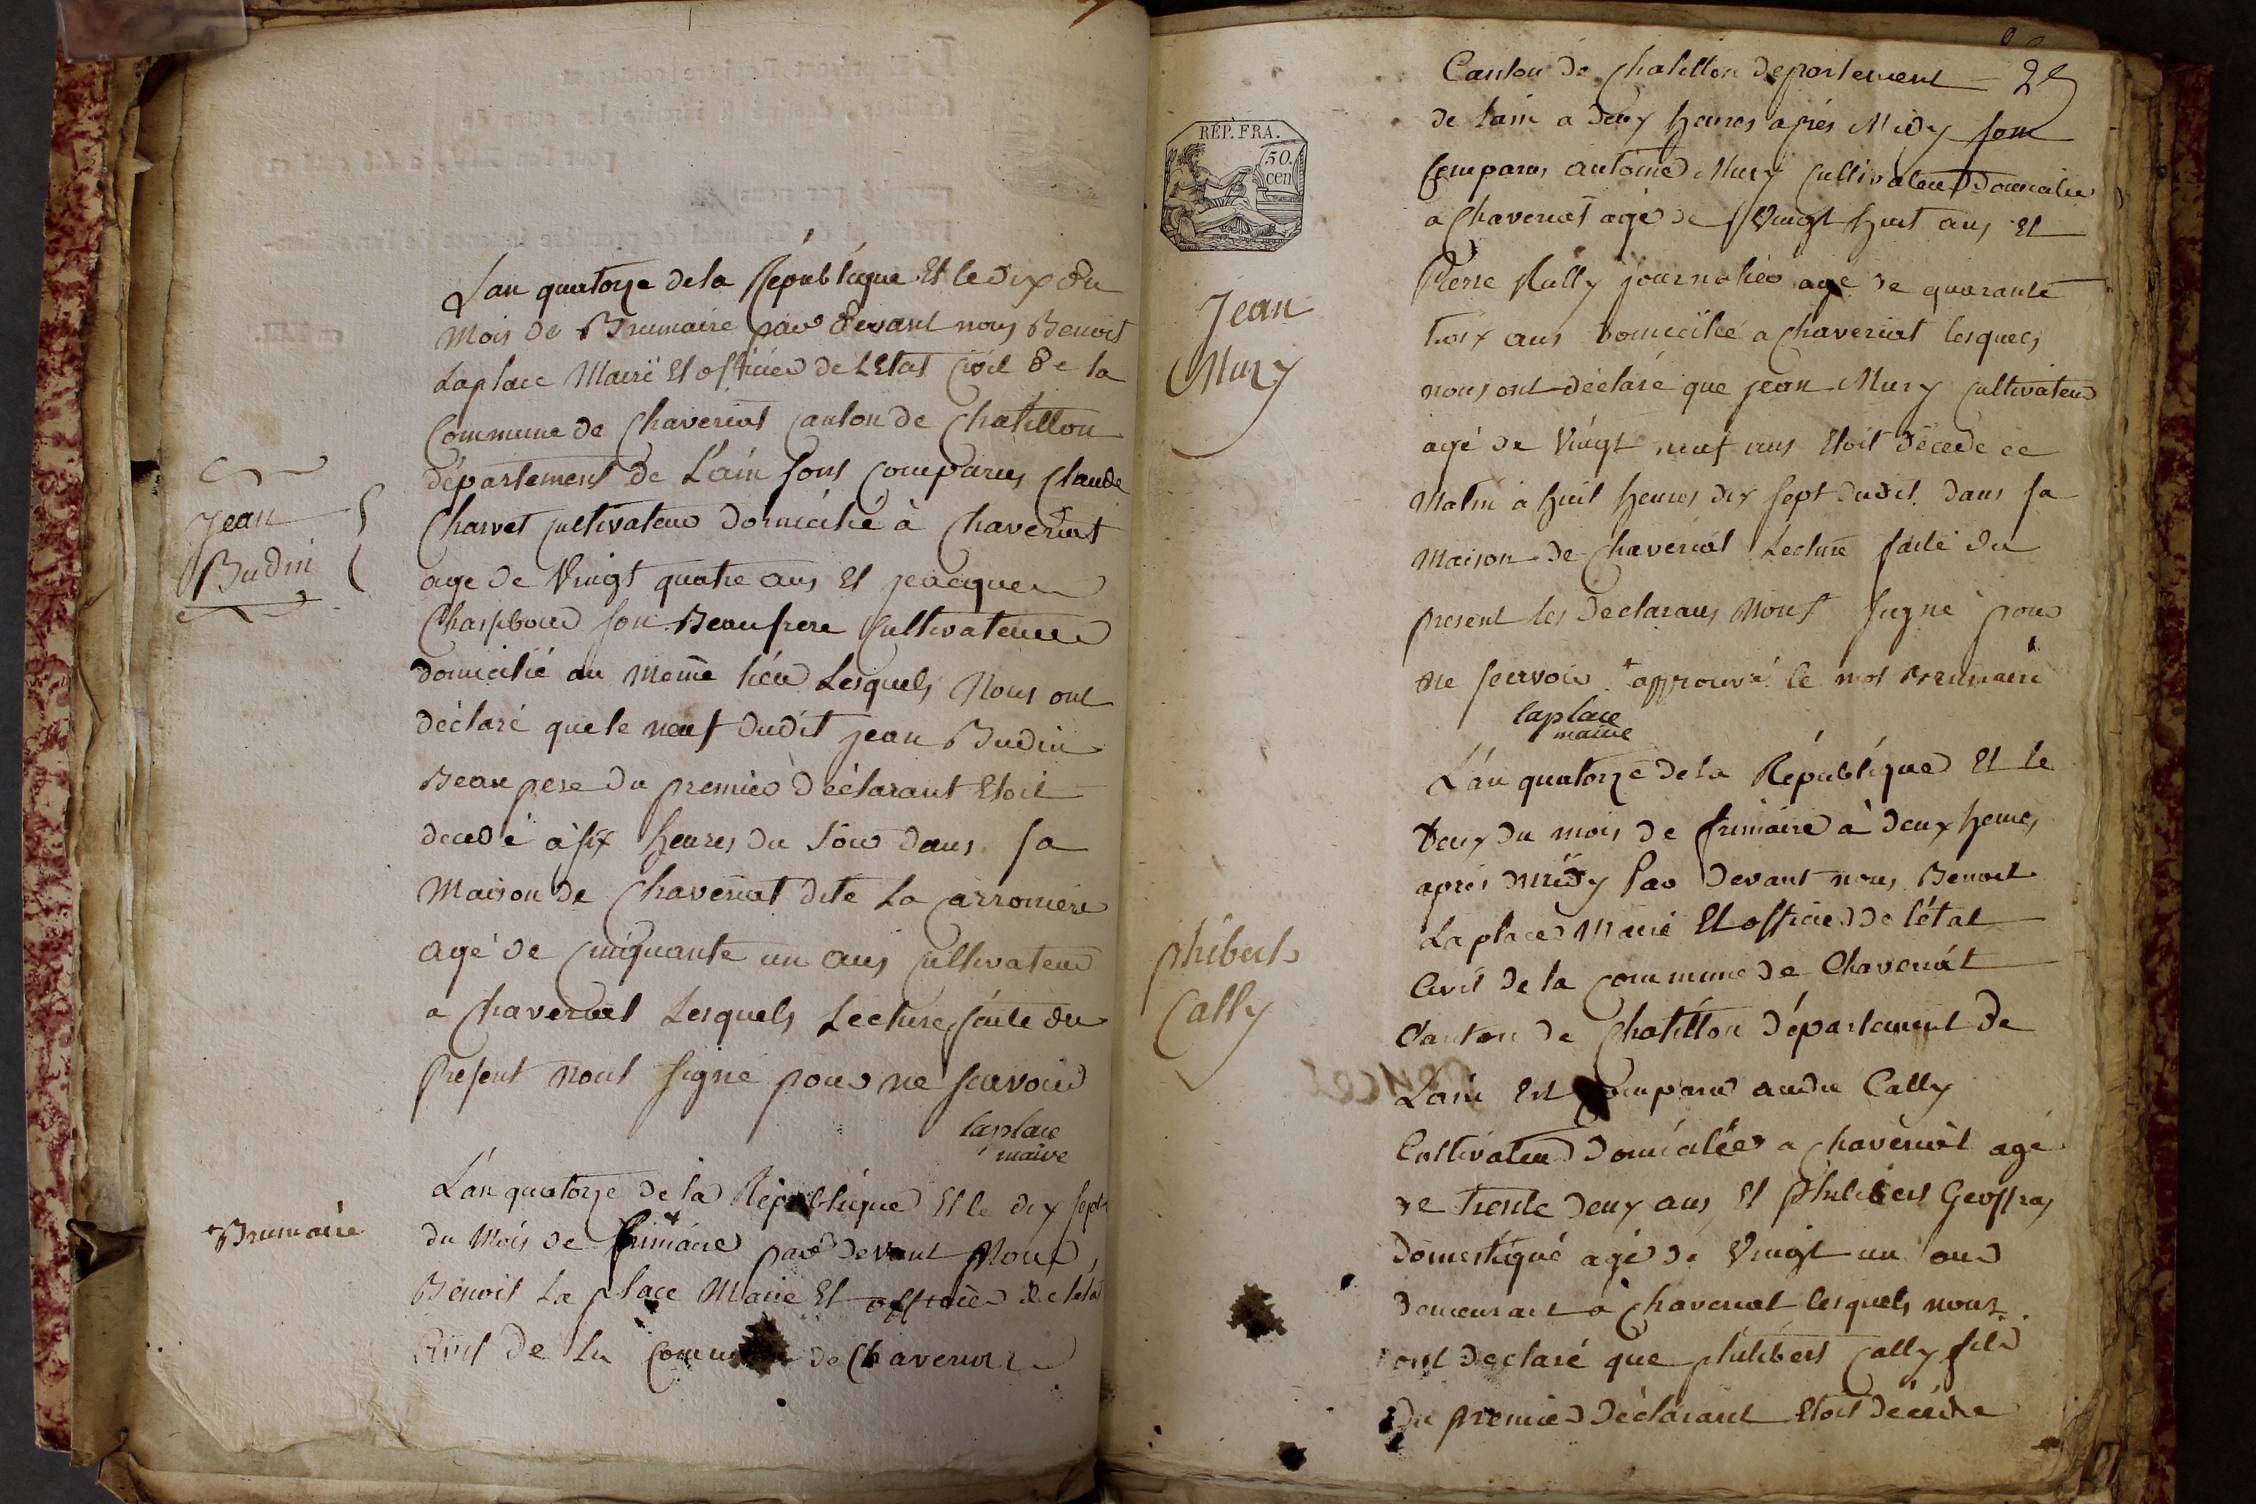 Jean
Budin
L'an quatorze de la République Et le dix du
mois de Brumaire par devant nous Benoit
Laplace Mairë Et officier de L'Etat Civil de la
Commune de Chaveriat Canton de Chatillon
département de L'ain sont comparus Claude
Charvet cultivateur domicilié à Chaveriat
age de Vingt quatre ans Et
son Beaufrere Cultivateur
domicilié au même lieu Lesquels Nous ont
déclaré que le neuf dudit jean Budin
Beau pere du premier déclarant Etoit
decedé à six heures du soir dans sa
Maison de Chaveriat dite La
agé de cinquante un ans cultivateur
a Chaveriat Lesquels Lecture faite du
present nont signé pour ne scavoir
laplace
maire
+Brumaire
L'an quatorze de la République Et le dix sept
du Mois de frimaire + par devant Nous
Benoit La place Maire Et officier de l'état
Civil de La Commune de Chaveriat
RÉP. FRA.
50.
cen
Jean
Mury
Canton de Chatillon departement
de L'ain a deux heures après Midy sont
comparus antoine Mury cultivateur domicilié
a Chaveriat agé de Vingt huit ans Et
Pierre journalier age de quarante
ans domicilié a Chaveriat lesquels
nous ont déclaré que jean Mury cultivateur
agé de Vingt neuf ans Etoit décede ce
Matin a huit heures dix sept dudit dans sa
Maison de Chaveriat Lecture faite du
present les declarans Nont signé pour
ne scavoir + approuvé le mot Brumaire
laplace
maire
philibert
Cally
L'an quatorze de la République Et le
deux du mois de frimaire à deux heures
après midy Par devant nous Benoit
Laplace Maire Et officier de l'état
Civil de la commune de Chaveriat
Canton de Chatillon département de
L'ain Est comparu andre Cally
Cultivateur domicilié a Chaveriat agé
de trente deux ans Et philibert Geoffray
domestique agé de Vingt un ans
demeurant à Chaveriat lesquels nous
ont declaré que philibert Cally fils
du premier Déclarant Etoit décédé